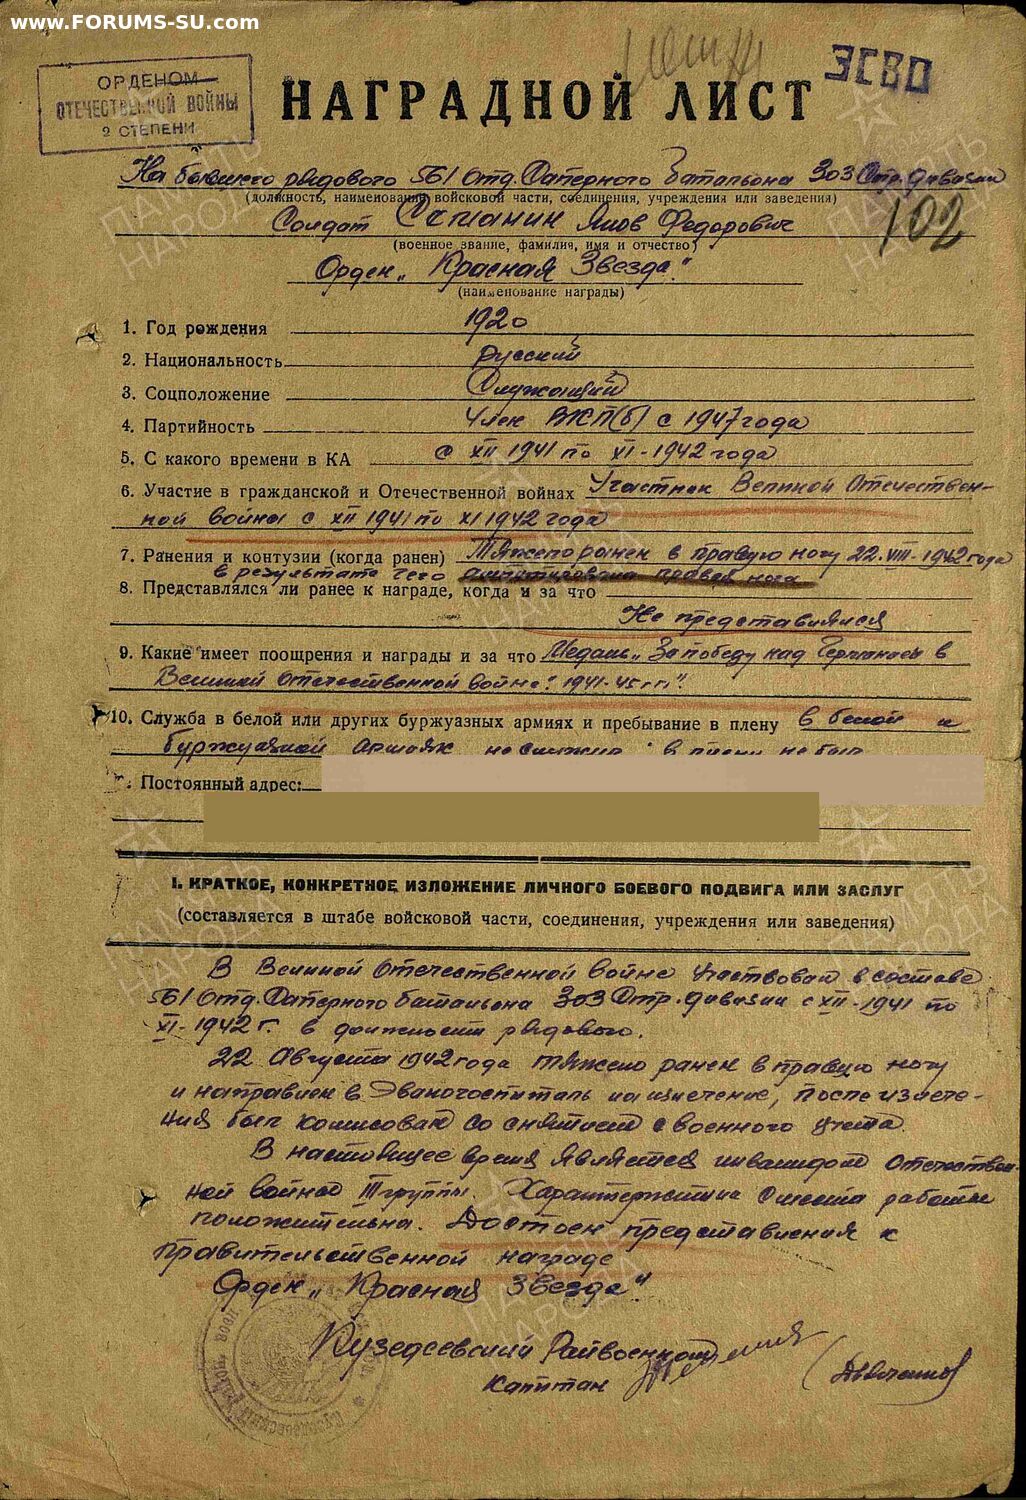 www.FORUMS-SU.com
ОРДЕНОМ
ОТЕЧЕСТВЕННОЙ ВОЙНЫ
2 СТЕПЕНИ
ЗСВО
НАГРАДНОЙ ЛИСТ
На бывшего рядового 561 отд. Саперного Батальона 303 Стр. дивизии
(должность, наименование войсковой части, соединения, учреждения или заведения)
102
Солдат Яков Федорович
(военное звание, фамилия, имя и отчество)
Орден „Красная Звезда"
(наименование награды)
1. Год рождения 1920
2. Национальность русский
3. Соцположение Служащий
4. Партийность Член ВКП(б) с 1947 года
5. С какого времени в КА с XII 1941 по XI-1942 года
6. Участие в гражданской и Отечественной войнах Участник Великой Отечествен-
ной войны с XII 1941 по XI 1942 года
7. Ранения и контузии (когда ранен) Тяжело ранен в правую ногу 22.VIII-1942 года
в результате чего ампутирована правая нога
8. Представлялся ли ранее к награде, когда и за что
Не представлялся
9. Какие имеет поощрения и награды и за что Медаль „За победу над Германией в
Великой Отечественной войне". 1941-45 гг".
10. Служба в белой или других буржуазных армиях и пребывание в плену в белой и
буржуазной армиях не служил в плену не был
Постоянный адрес:
I. КРАТКОЕ, КОНКРЕТНОЕ ИЗЛОЖЕНИЕ ЛИЧНОГО БОЕВОГО ПОДВИГА ИЛИ ЗАСЛУГ
(составляется в штабе войсковой части, соединения, учреждения или заведения)
В Великой Отечественной войне участвовал в составе
561 отд. Саперного батальона 303 Стр. дивизии с XII-1941 по
XI-1942 г. в должности рядового.
22 Августа 1942 года тяжело ранен в правую ногу
и направлен в Эвакогоспиталь на излечение, после излече-
ния был комисован со снятием с военного учета.
В настоящее время является инвалидом отечествен-
ной войны III группы. Характеристика с места работы
положительна. Достоин представления к
правительственной награде
Орден „Красная Звезда"
Кузедеевский Райвоенком
Капитан
ПАМЯТЬ
НАРОДА